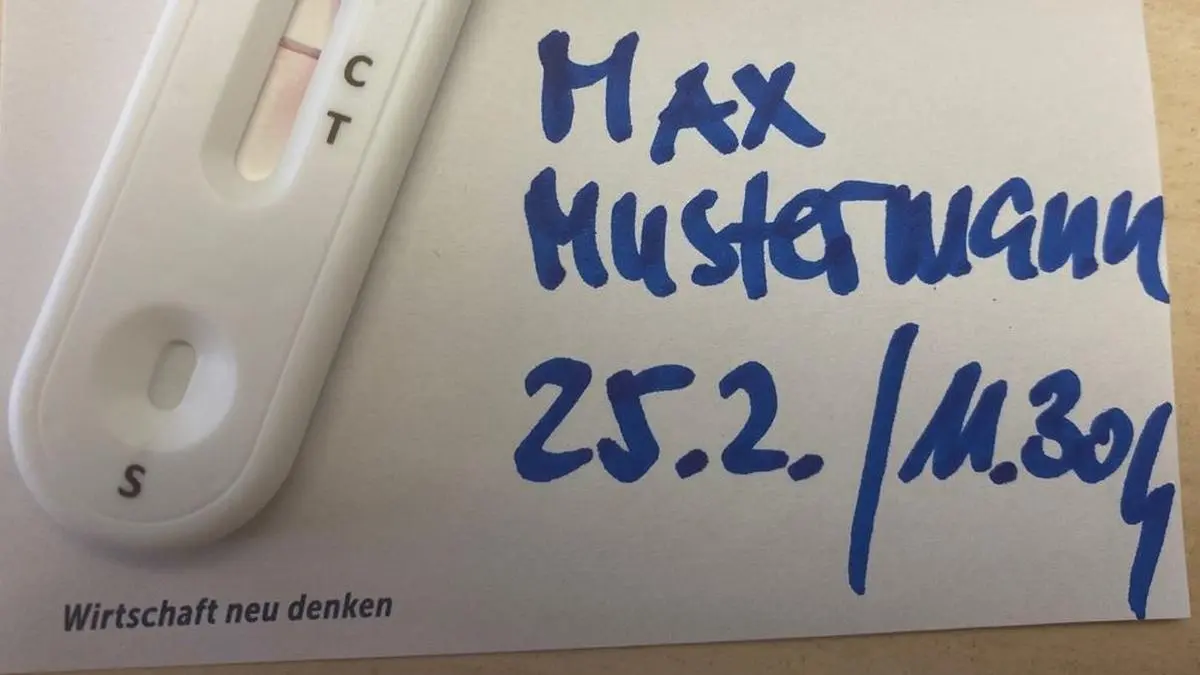 C
T
S
Max
Mustermann
25.2. / 11.30h
Wirtschaft neu denken